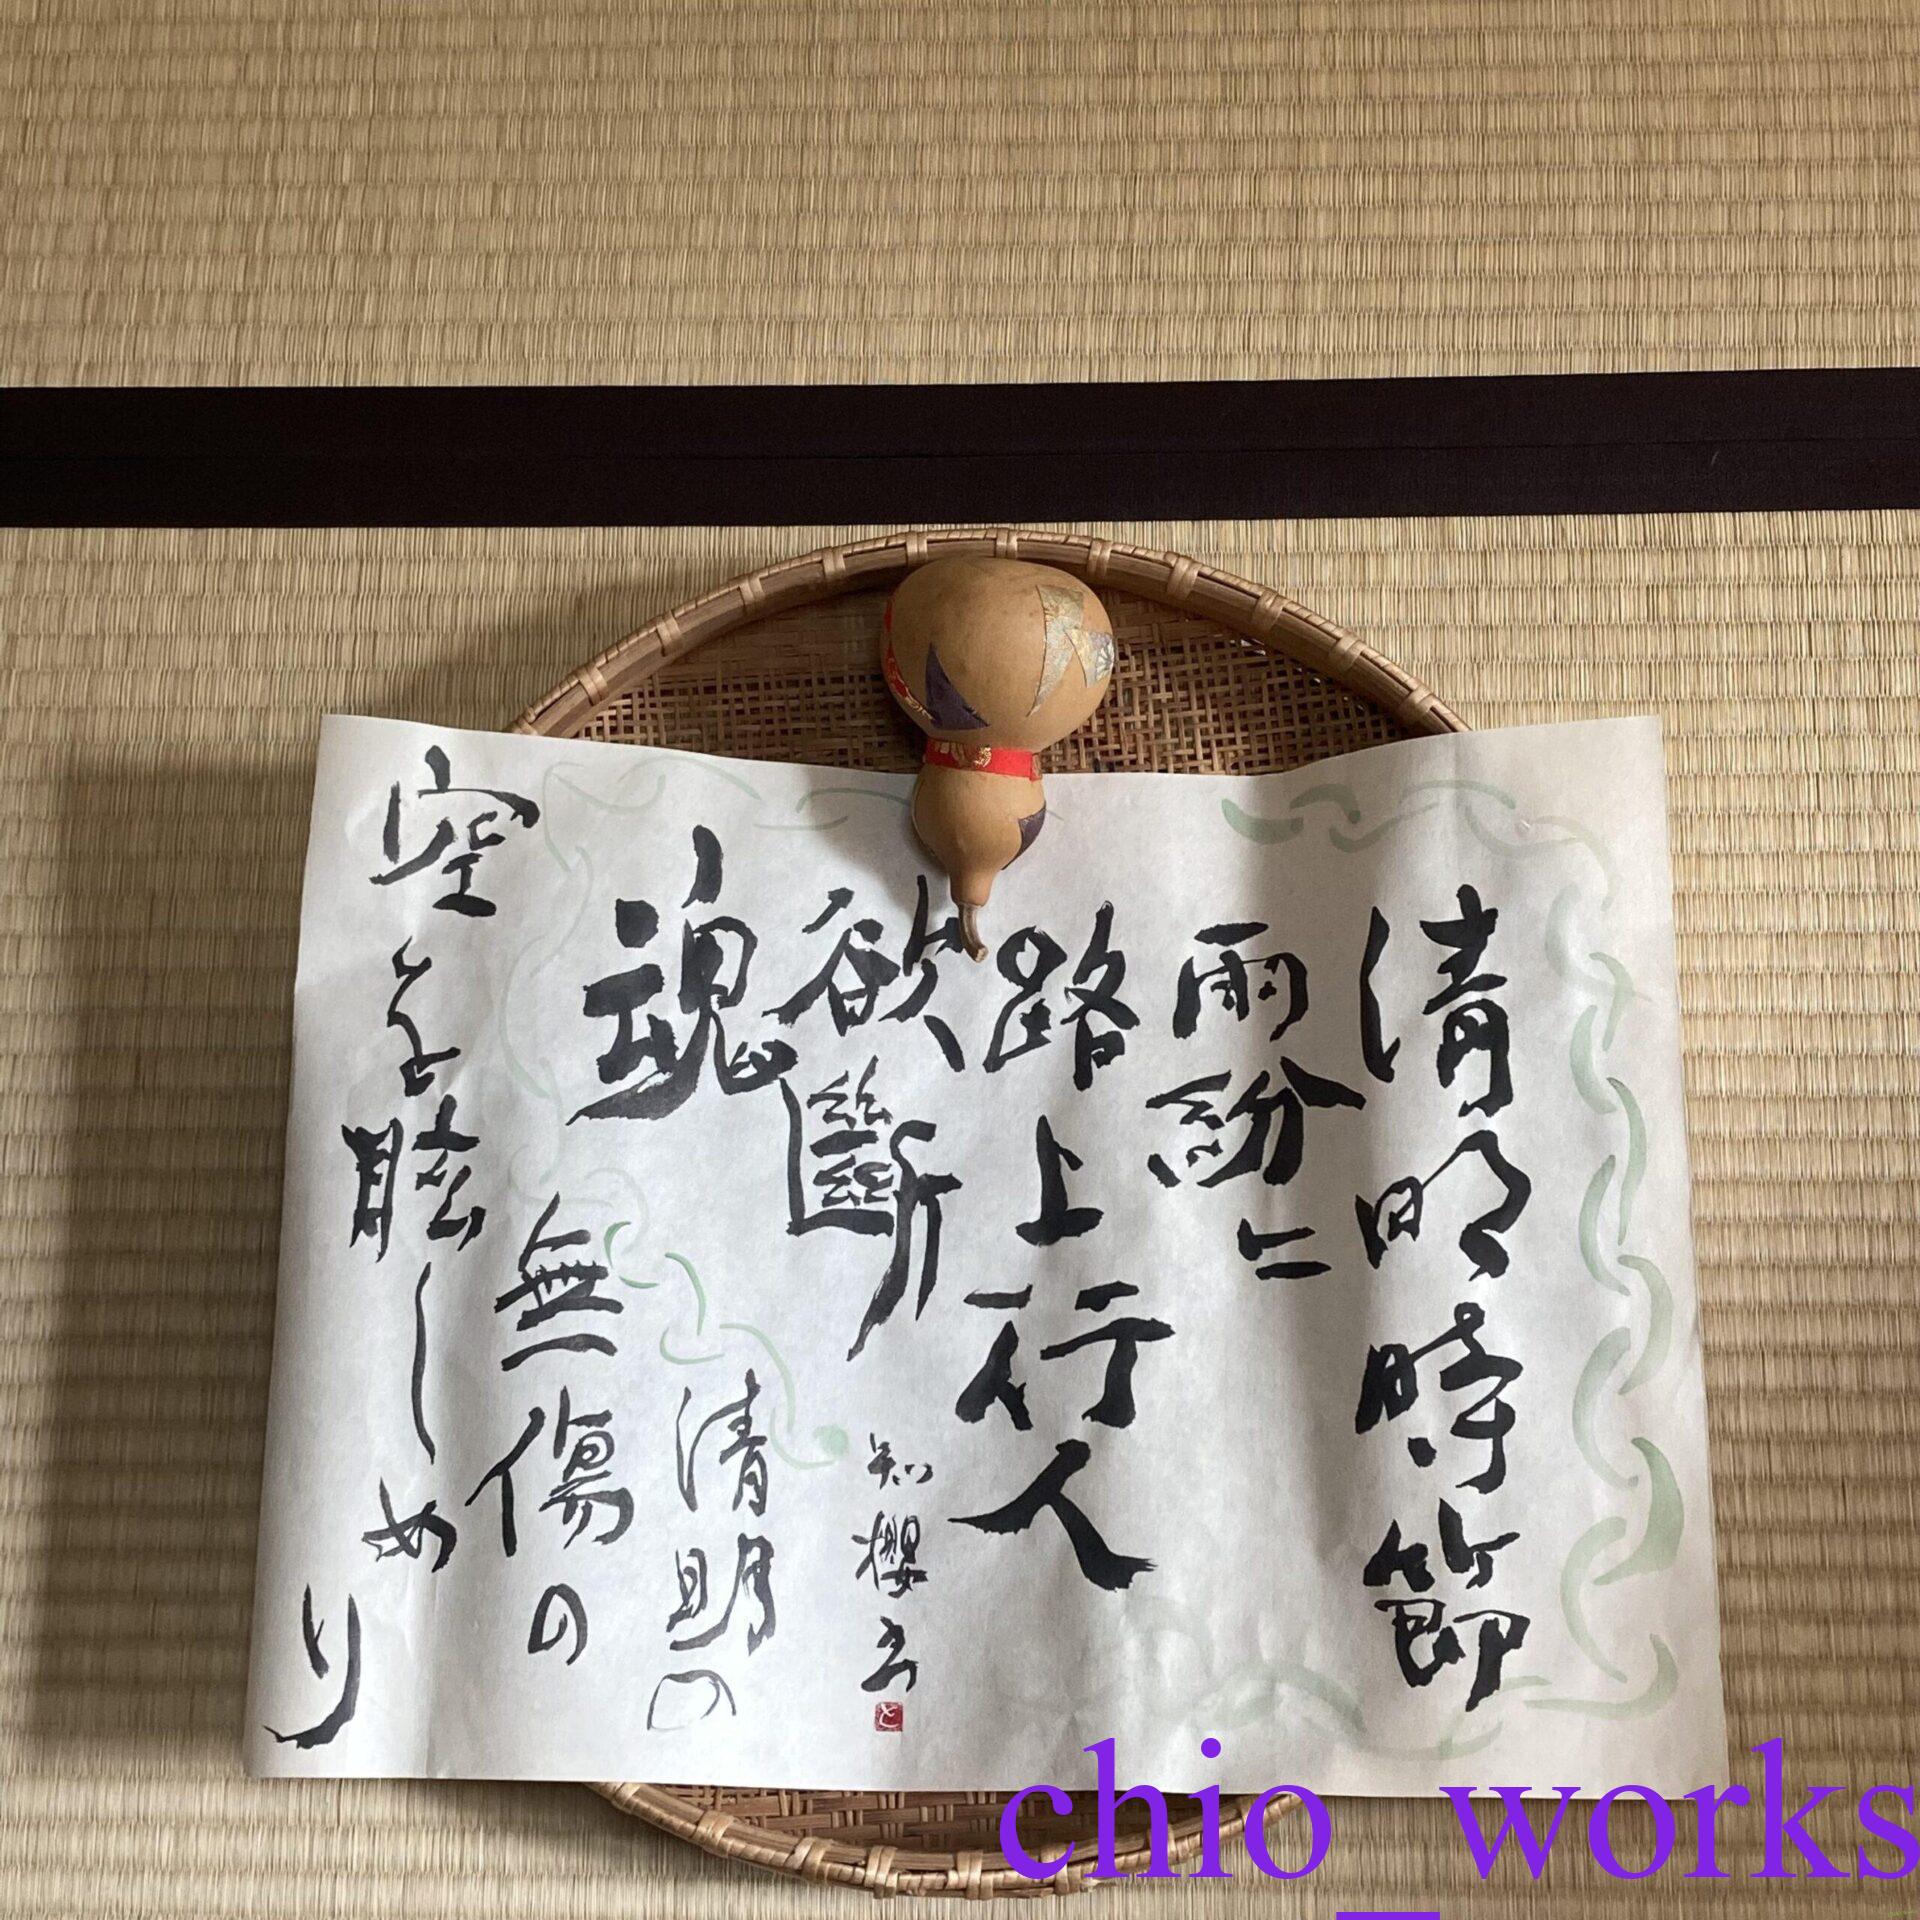 清明時節
雨紛〻
路上行人
欲斷
魂
知櫻書
と
清明の
無傷の
空を眩しめり
chio_works